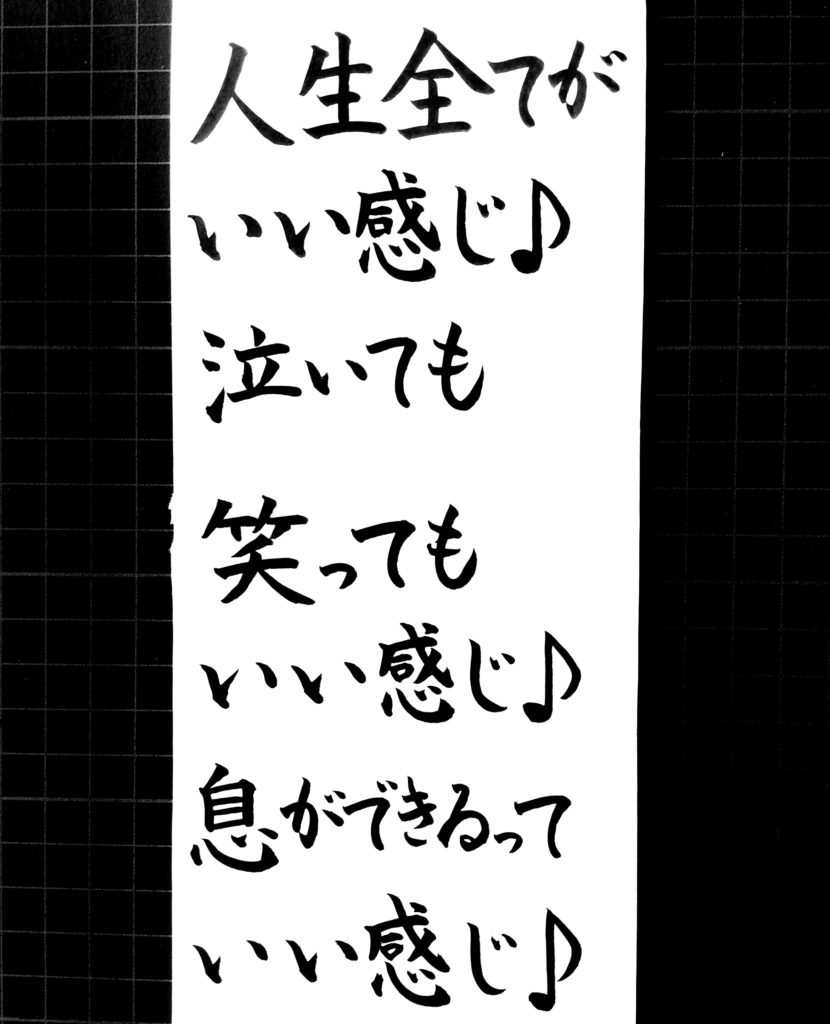 人生全てが
いい感じ♪
泣いても
笑っても
いい感じ♪
息ができるって
いい感じ♪